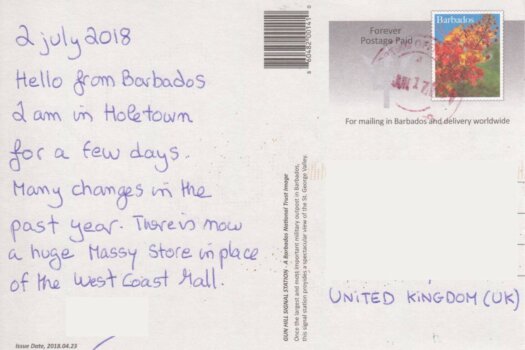 2 july 2018
Hello from Barbados
I am in Holetown
for a few days.
Many changes in the
past year. There is now
a huge Massy Store in place
of the West Coast Mall.
Issue Date, 2018.04.23
GUN HILL SIGNAL STATION - A Barbados National Trust Image
Once the largest and most important military outpost in Barbados,
this signal station provides a spectacular view of the St. George Valley.
Forever
Postage Paid
Barbados
JAN 17
For mailing in Barbados and delivery worldwide
UNITED KINGDOM (UK)